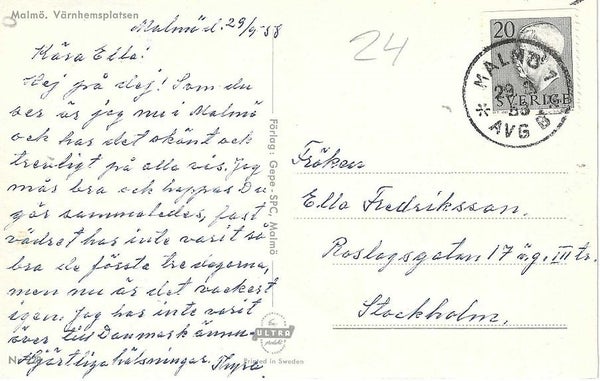 Malmö. Värnhemsplatsen
Malmö d. 29/9-58
Kära Ella!
Hej på dej! Som du
ser är jag nu i Malmö
och har det skönt och
trevligt på alla vis. Jag
mås bra och hoppas Du
gör sammaledes, fast
vädret har inte varit så
bra de första tre dagarna,
men nu är det vackert
igen. Jag har inte varit
över till Danmark ännu.
Hjärtliga hälsningar Thyra
N
Förlag: Gepe - SPC, Malmö
ULTRA
Printed in Sweden
24
20
SVERIGE
MALMÖ 1
29 9
58
AVG B
Fröken
Ella Fredriksson.
Roslagsgatan 17 ö.g. III tr.
Stockholm.